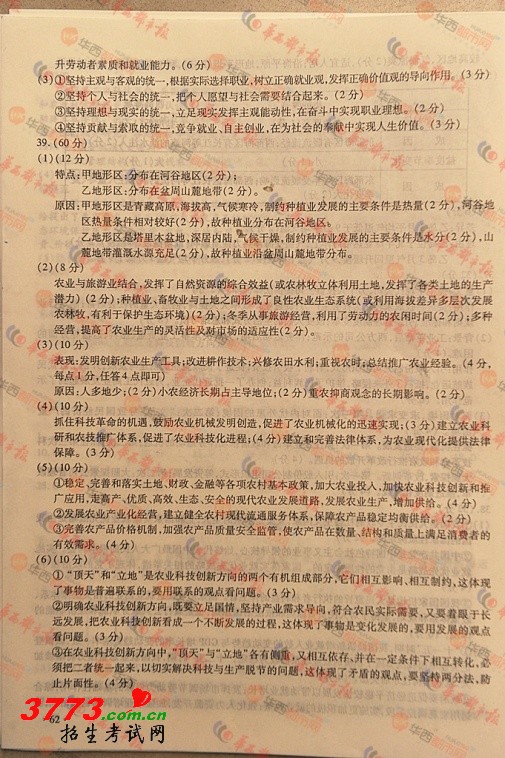 升劳动者素质和就业能力。(6分)
(3)①坚持主观与客观的统一,根据实际选择职业,树立正确就业观,发挥正确价值观的导向作用。(3分)
②坚持个人与社会的统一,把个人愿望与社会需要结合起来。(2分)
③坚持理想与现实的统一,立足现实发挥主观能动性,在奋斗中实现职业理想。(2分)
④坚持贡献与索取的统一,竞争就业、自主创业,在为社会的奉献中实现人生价值。(3分)
39.(60分)
(1)(12分)
特点:甲地形区:分布在河谷地区(2分);
乙地形区:分布在盆周山麓地带(2分)。
原因:甲地形区是青藏高原,海拔高,气候寒冷,制约种植业发展的主要条件是热量(2分),河谷地
区热量条件相对较好(2分),故种植业分布在河谷地区。
乙地形区是塔里木盆地,深居内陆,气候干燥,制约种植业发展的主要条件是水分(2分),山
麓地带灌溉水源充足(2分),故种植业沿盆周山麓地带分布。
(2)(8分)
农业与旅游业结合,发挥了自然资源的综合效益(或农林牧立体利用土地,发挥了各类土地的生产
潜力)(2分);种植业、畜牧业与土地之间形成了良性农业生态系统(或利用海拔差异多层次发展
农林牧,有利于保护生态环境)(2分);冬季从事旅游经营,利用了劳动力的农闲时间(2分);多种
经营,提高了农业生产的灵活性及对市场的适应性(2分)。
(3)(10分)
表现:发明创新农业生产工具;改进耕作技术;兴修农田水利;重视农时;总结推广农业经验。(4分,
每点1分,任答4点即可)
原因:人多地少;(2分)小农经济长期占主导地位;(2分)重农抑商观念的长期影响。(2分)
(4)(10分)
抓住科技革命的机遇,鼓励农业机械发明创造,促进了农业机械化的迅速实现;(3分)建立农业科
研和农技推广体系,促进了农业科技化进程;(4分)建立和完善法律体系,为农业现代化提供法律
保障。(3分)
(5)(10分)
①稳定、完善和落实土地、财政、金融等各项农村基本政策,加大农业投入,加快农业科技创新和推
广应用,走高产、优质、高效、生态、安全的现代农业发展道路,发展农业生产,增加供给。(4分)
②发展农业产业化经营,建立健全农村现代流通服务体系,保障农产品稳定与均衡供给。(2分)
③完善农产品价格机制,加强农产品质量安全监管,使农产品在数量、结构和质量上满足消费者的
有效需求。(4分)
(6)(10分)
①“顶天”和“立地”是农业科技创新方向的两个有机组成部分,它们相互影响、相互制约,这体现
了事物是普遍联系的,要用联系的观点看问题。(3分)
②明确农业科技创新方向,既要立足国情,坚持产业需求导向,符合农民实际需要,又要着眼于长
远发展,把农业科技创新看成一个不断发展的过程,这体现了事物是变化发展的,要用发展的观点
看问题。(3分)
③在农业科技创新方向中,“顶天”与“立地”各有侧重,又相互依存,并在一定条件下相互转化,必
须把二者统一起来,以切实解决科技与生产脱节的问题,这体现了矛盾的观点,要坚持两分法,防
止片面性。(4分)
3773.com.cn
招生考试网
62